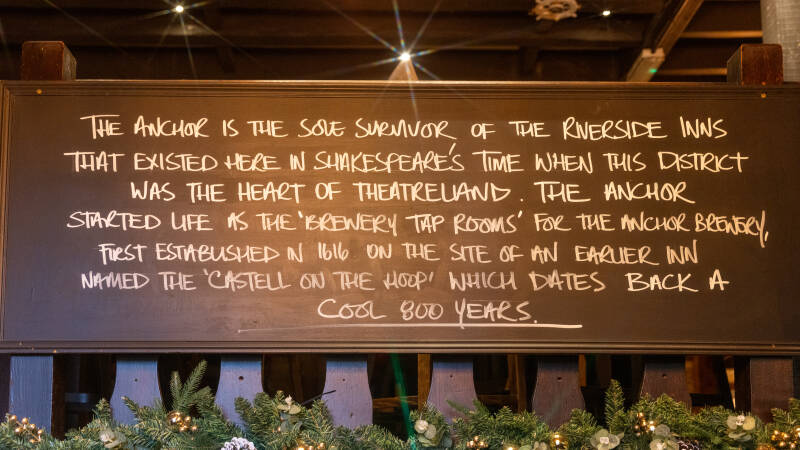 THE ANCHOR IS THE SOLE SURVIVOR OF THE RIVERSIDE INNS
THAT EXISTED HERE IN SHAKESPEARE'S TIME WHEN THIS DISTRICT
WAS THE HEART OF THEATRELAND. THE ANCHOR
STARTED LIFE AS THE 'BREWERY TAP ROOMS' FOR THE ANCHOR BREWERY,
FIRST ESTABLISHED IN 1616 ON THE SITE OF AN EARLIER INN
NAMED THE 'CASTELL ON THE HOOP' WHICH DATES BACK A
COOL 800 YEARS.